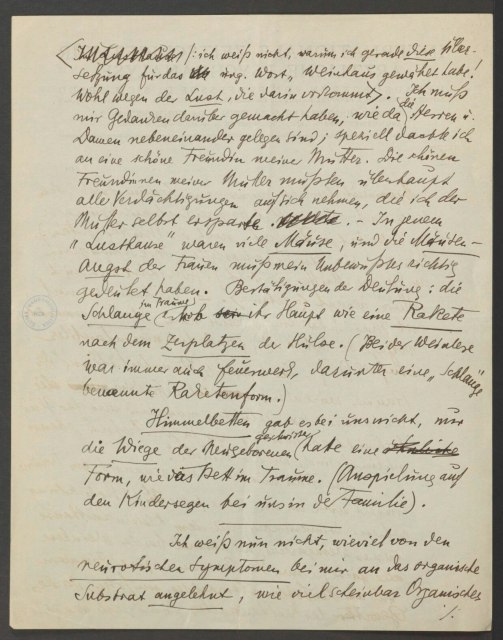 /: ich weiß nicht, warum ich gerade diese Über-
setzung für das ung. Wort „Weinhaus" gewählt habe!
Wohl wegen der Lust, die darin vorkommt. Ich muß
mir Gedanken darüber gemacht haben, wie da die Herren u.
Damen nebeneinander gelegen sind; speziell dachte ich
an eine schöne Freundin meiner Mutter. Die schönen
Freundinnen meiner Mutter mußten überhaupt
alle Verdächtigungen auf sich nehmen, die ich der
Mutter selbst ersparte. – In jenem
„Lusthause" waren viele Mäuse, und die Mäuse-
Angst der Frauen muß mein Unbewußtes richtig
gedeutet haben. Bestätigungen der Deutung: die
Schlange im Traume erhob ihr Haupt wie eine Rakete
nach dem Zerplatzen der Hülse. (Bei der Weinlese
war immer auch Feuerwerk, darunter eine „Schlange"
benannte Raketenform.)
Himmelbetten gab es bei uns nicht, nur
die Wiege der Neugeborenen Geschwister hatte eine
Form, wie das Bett im Traume. (Anspielung auf
den Kindersegen bei uns in der Familie).
Ich weiß nun nicht, wieviel von den
neurotischen Symptomen bei mir an das organische
Substrat angelehnt, wie viel scheinbar Organisches
./.